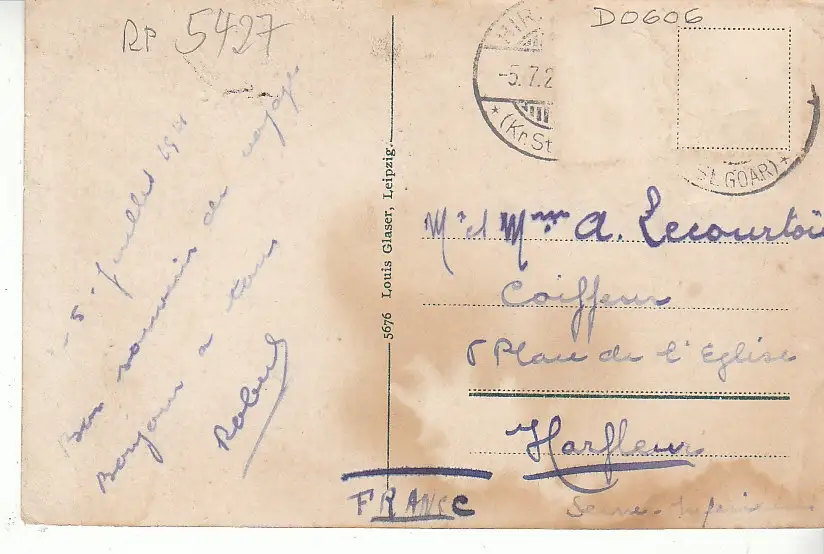 RP 5427
D0606
HIR
-5.7.2
(Kr.St
ST.GOAR)
5 Juillet
Bon souvenir du voyage
Bonjour a tous
Robert
5676 Louis Glaser, Leipzig.
Mr et Mme A. Lecourtois
Coiffeur
Place de l'Eglise
Harfleur
Seine-Inférieure
FRANCE